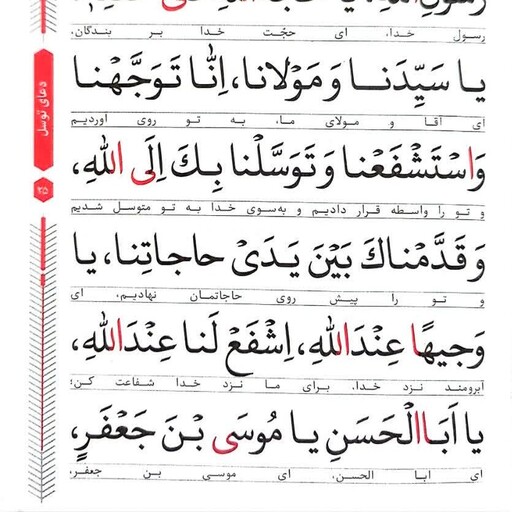 رسول خدا، ای حجّت خدا بر بندگان،
یا سَیِّدَنا وَ مَوْلانا، اِنّا تَوَجَّهْنا
ای آقا و مولای ما، به تو روی آوردیم
وَاسْتَشْفَعْنا وَ تَوَسَّلْنا بِکَ اِلَی اللهِ،
و تو را واسطه قرار دادیم و به‌سوی خدا به تو متوسل شدیم
وَ قَدَّمْناکَ بَیْنَ یَدَیْ حاجاتِنا، یا
و تو را پیش روی حاجاتمان نهادیم، ای
وَجیهًا عِنْدَاللهِ، اِشْفَعْ لَنا عِنْدَاللهِ،
آبرومند نزد خدا، برای ما نزد خدا شفاعت کن؛
یا اَبَاالْحَسَنِ یا مُوسَی بْنَ جَعْفَرٍ،
ای ابا الحسن، ای موسی بن جعفر،
دعای توسل